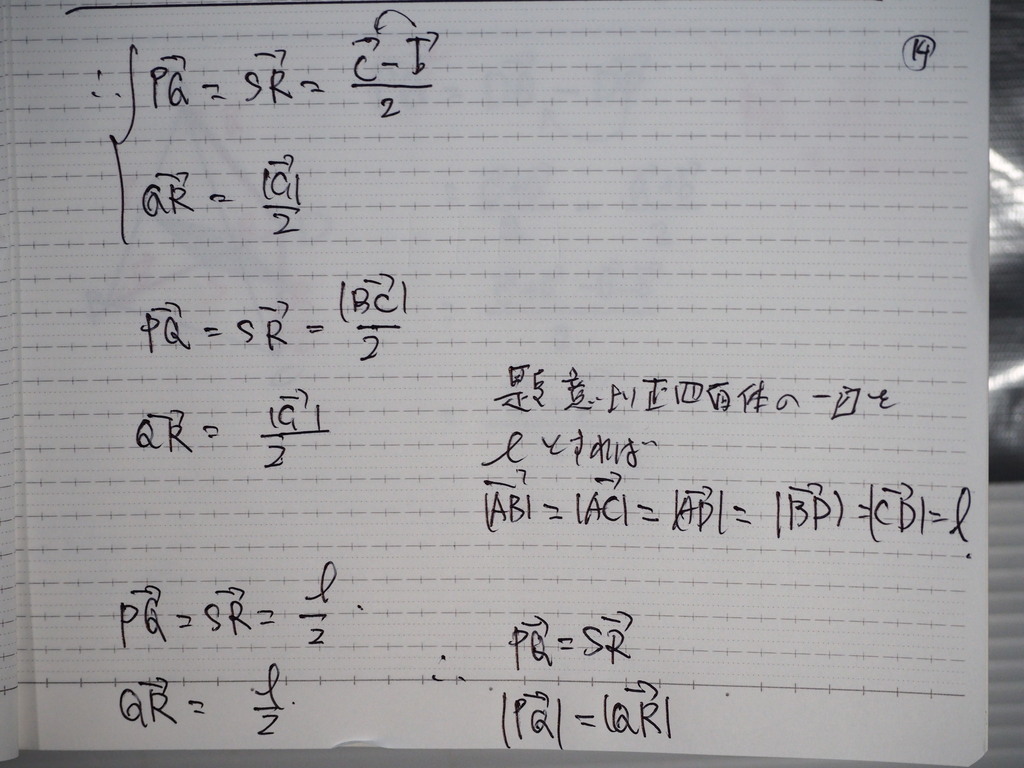 ⑭
∴ { PQ→ = SR→ = (c→ - b→)/2
QR→ = |a→|/2
PQ→ = SR→ = |BC→|/2
QR→ = |a→|/2
題意より正四面体の一辺を
lとすれば
|AB→| = |AC→| = |AD→| = |BD→| = |CD→| = l.
PQ→ = SR→ = l/2.
QR→ = l/2.
∴ PQ→ = SR→
|PQ→| = |QR→|